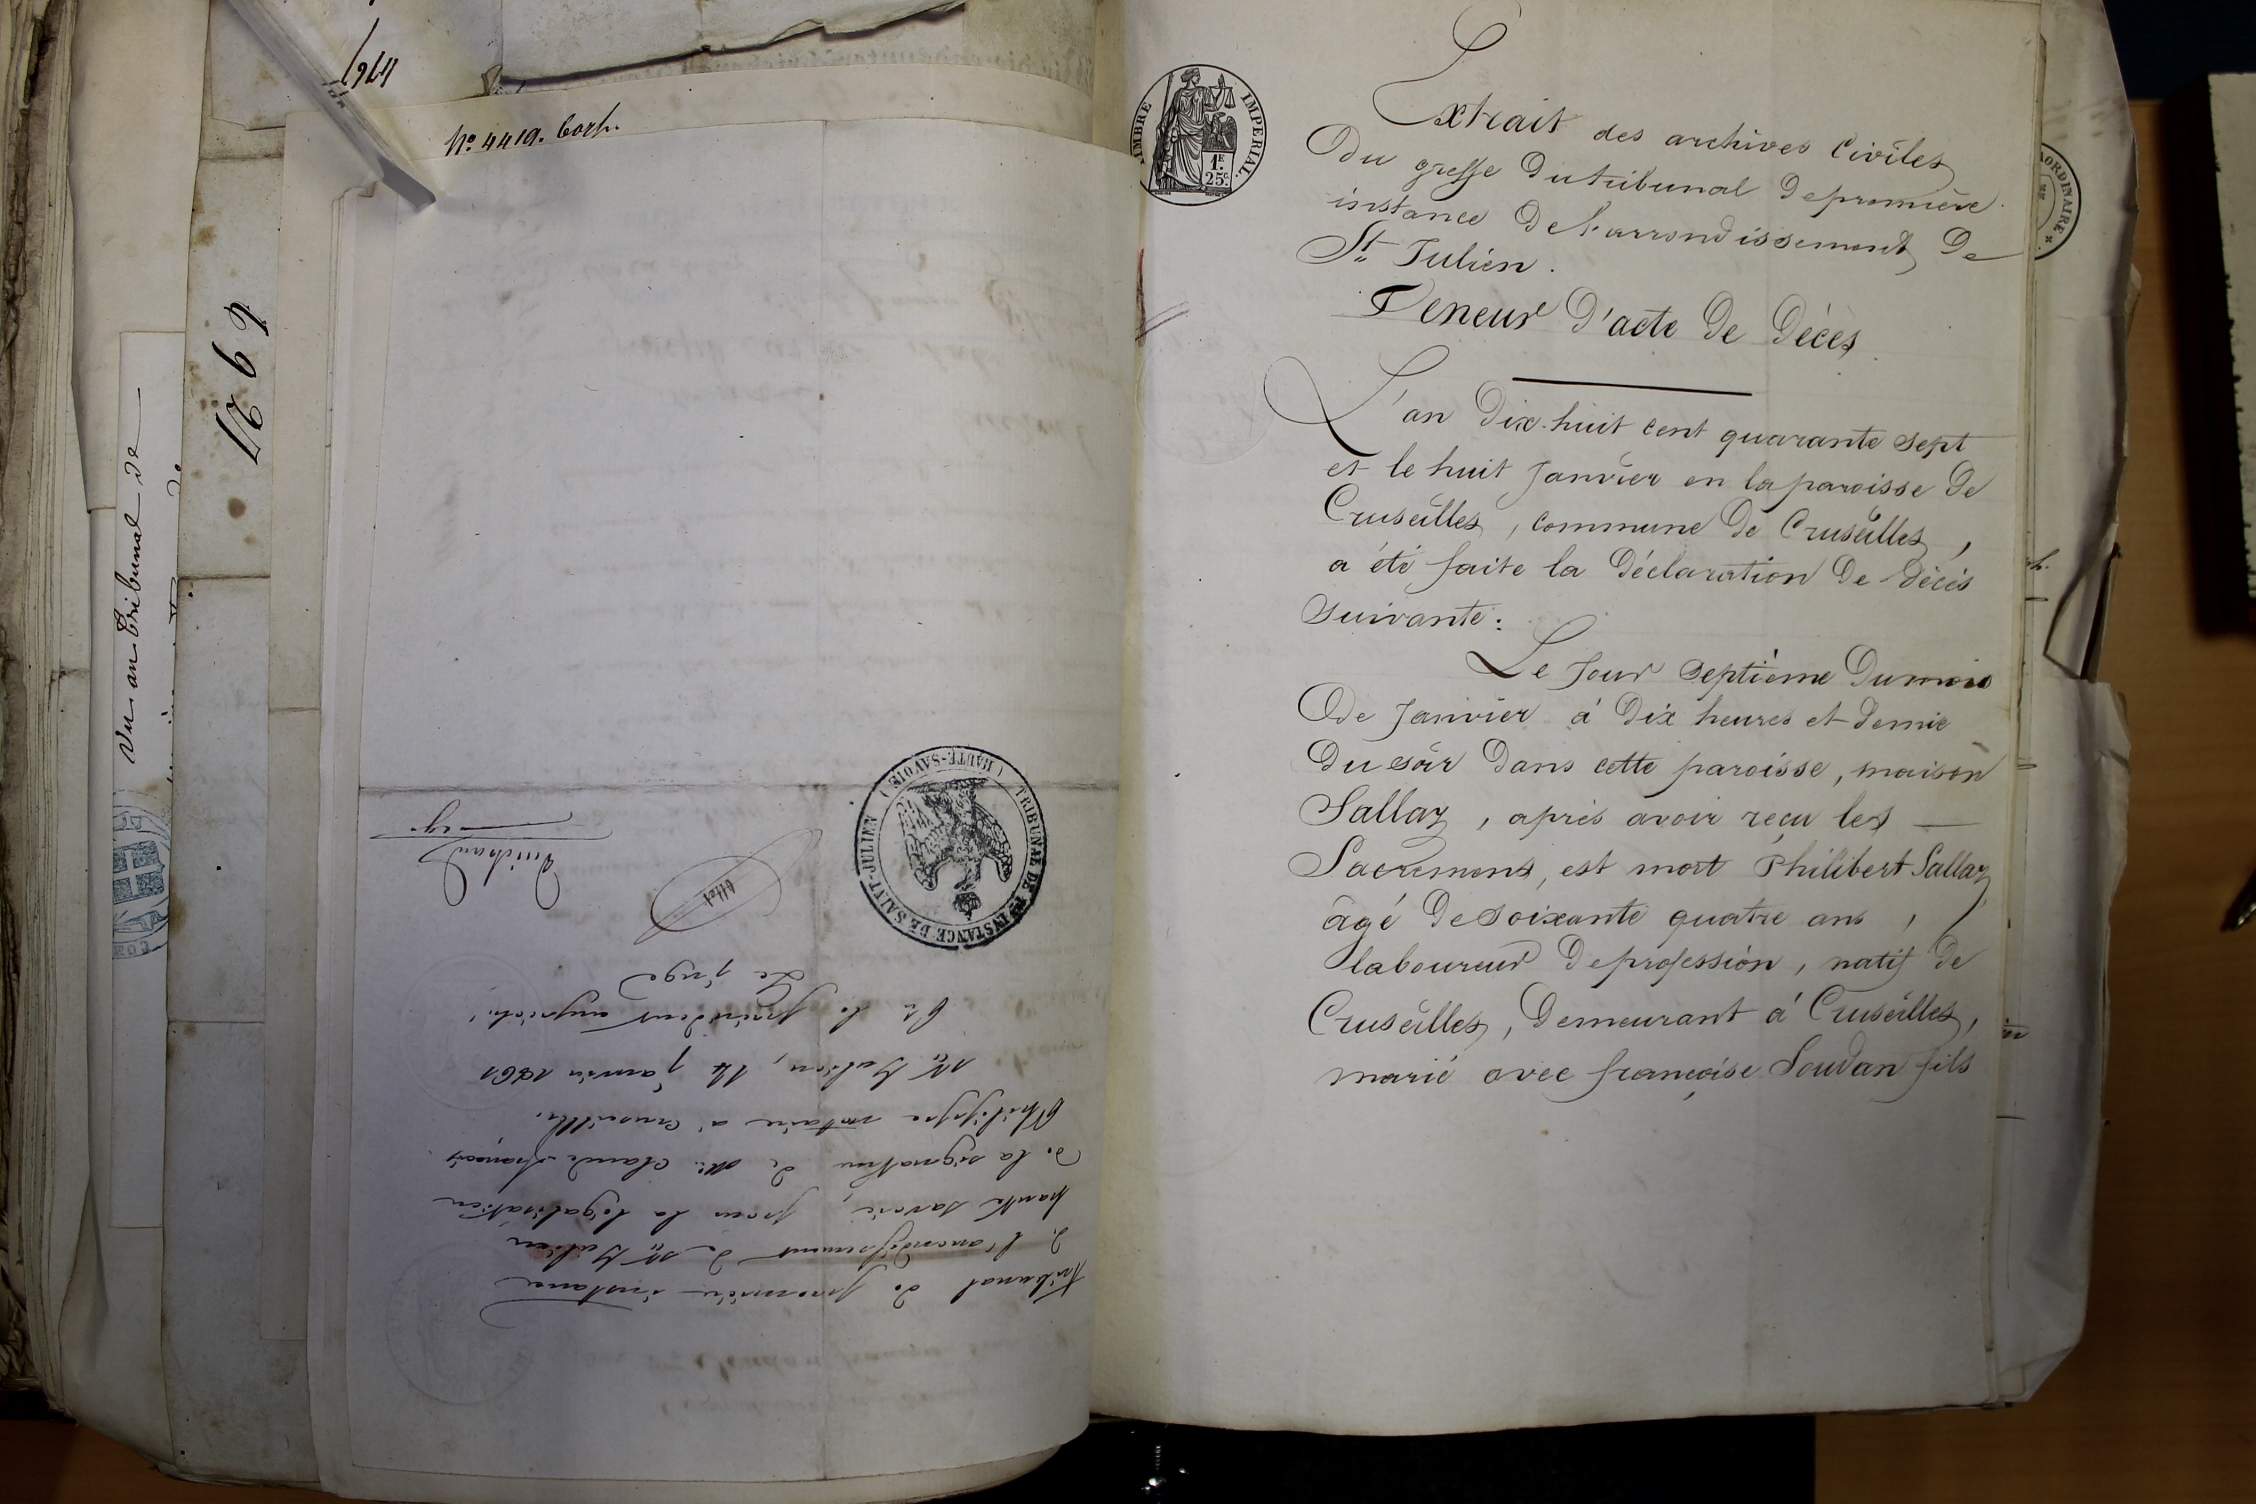 964
No 4419. Corp.
6927
Vu au Tribunal de
TRIBUNAL DE 1RE INSTANCE DE SAINT-JULIEN (HAUTE-SAVOIE)
Tribunal de première instance
de l'arrondissement de St Julien
haute savoie, pour la légalisation
de la signature de Me Claude françois
Philippe notaire à Cruseilles.
St Julien, 14 janvier 1861
Pr le président empêché
Le juge
juge
TIMBRE IMPERIAL.
1F. 25C.
ORDINAIRE
Extrait des archives Civiles
Du greffe Du tribunal De première
instance De l'arrondissement De
St Julien.
Teneur D'acte De Décès
L'an Dix-huit cent quarante sept
et le huit Janvier en la paroisse De
Cruseilles, commune De Cruseilles,
a été faite la Déclaration De Décès
Suivante:
Le Jour Septième Du mois
De Janvier à Dix heures et Demie
Du soir Dans cette paroisse, maison
Sallaz, après avoir reçu les
Sacremens, est mort Philibert Sallaz
âgé De soixante quatre ans,
laboureur De profession, natif De
Cruseilles, Demeurant à Cruseilles,
marié avec françoise Soudan fils